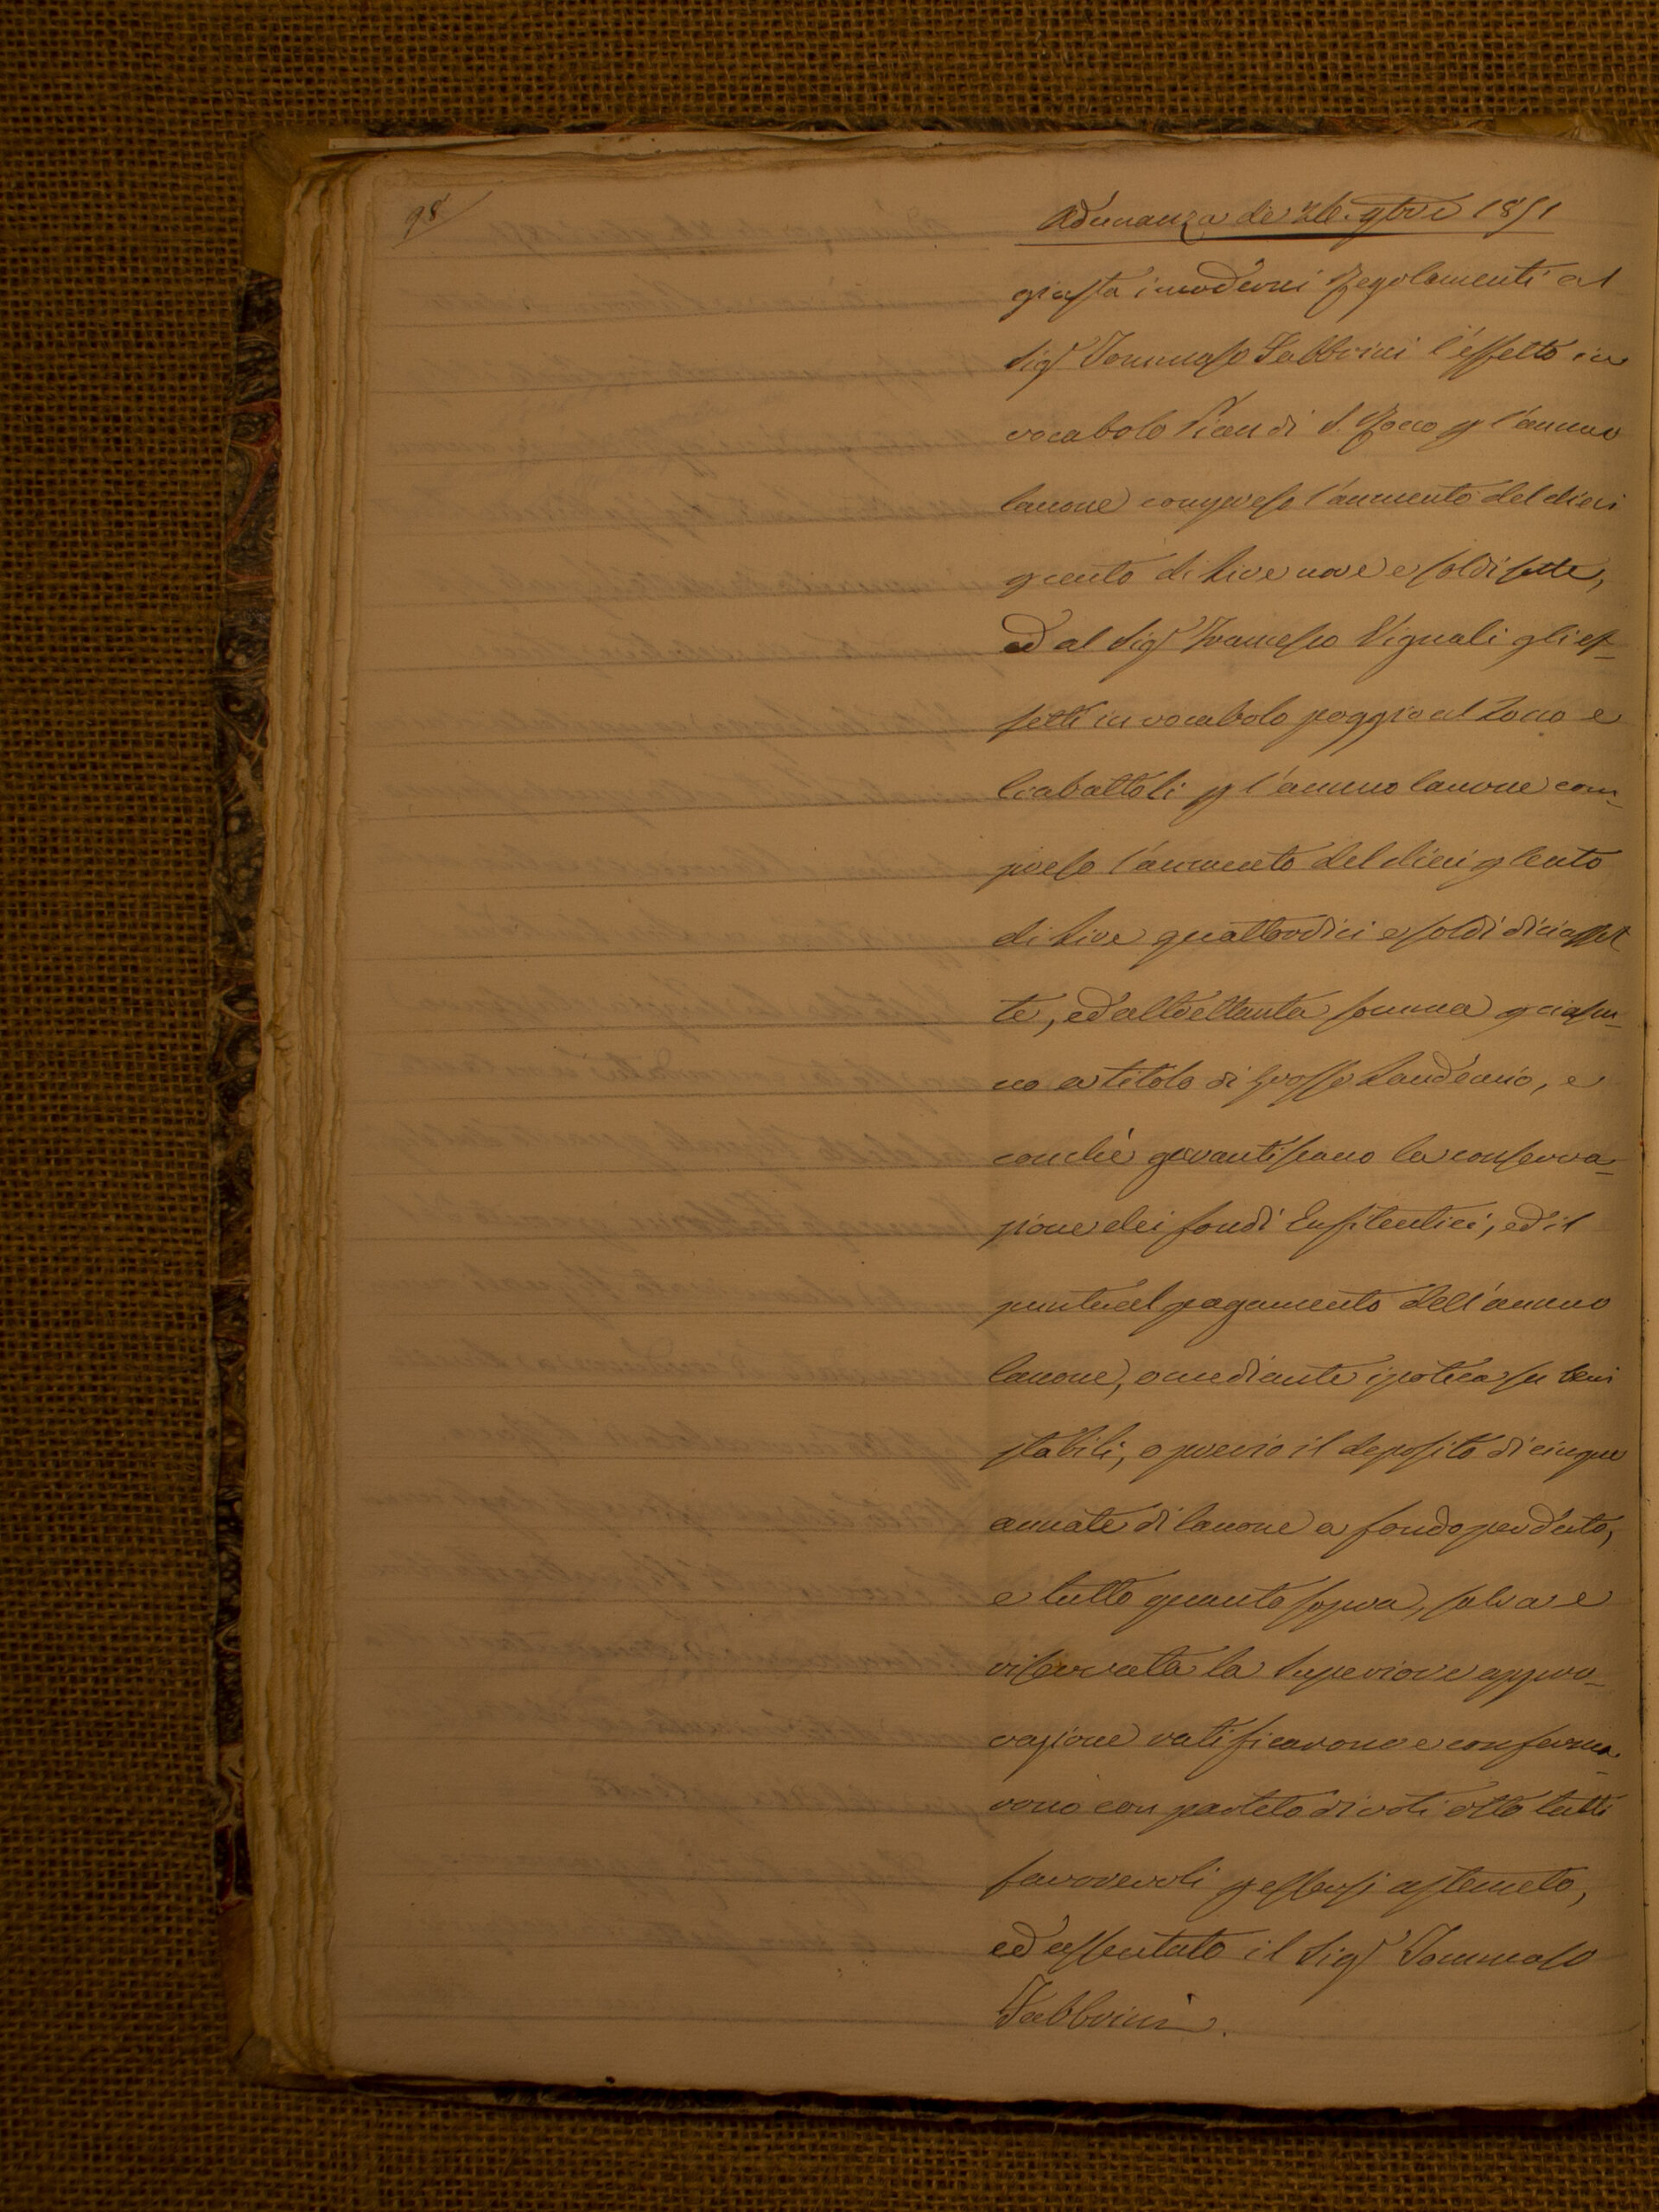 98
Adunanza de' 26. 9bre 1851
giusta i moderni Regolamenti al
Sigr Tommaso Fabbrini l'effetto in
vocabolo Pian di S. Rocco p l'annuo
Canone compreso l'aumento del dieci
p cento di Lire nove e soldi sette,
ed al Sigr Francesco Vignali gli ef-
fetti in vocabolo poggio al Rocco e
Ciabattoli p l'annuo Canone com-
preso l'aumento del dieci p Cento
di Lire quattordici e soldi diciasset
te, ed altrettanta somma p ciascu-
no a titolo di grosso Laudemio, e
conchè garantiscano la conserva-
zione dei fondi Enfiteutici, ed il
puntual pagamento dell'annuo
Canone, o mediante ipoteca su beni
stabili, o previo il deposito di cinque
annate di Canone a fondo perduto,
e tutto quanto sopra, salva e
riservata la Superiore appro-
vazione ratificarono e conferma-
rono con partito di voti otto tutti
favorevoli p essersi astenuto,
ed assentato il Sigr Tommaso
Fabbrini.